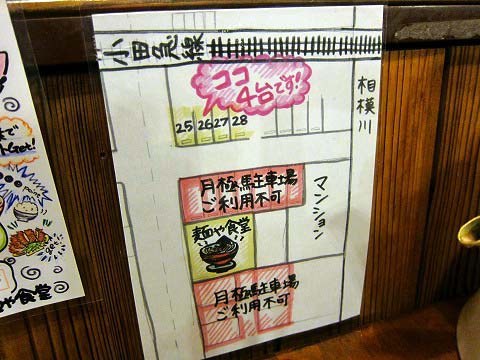 小田急線
ココ
4台です!
25 26 27 28
相模川
月極駐車場
ご利用不可
マンション
麺や食堂
月極駐車場
ご利用不可
や食堂